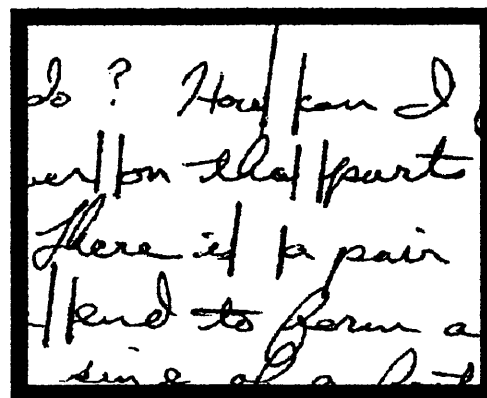 do ? How can I
on that parts
There is a pair
lend to form a
sine of a